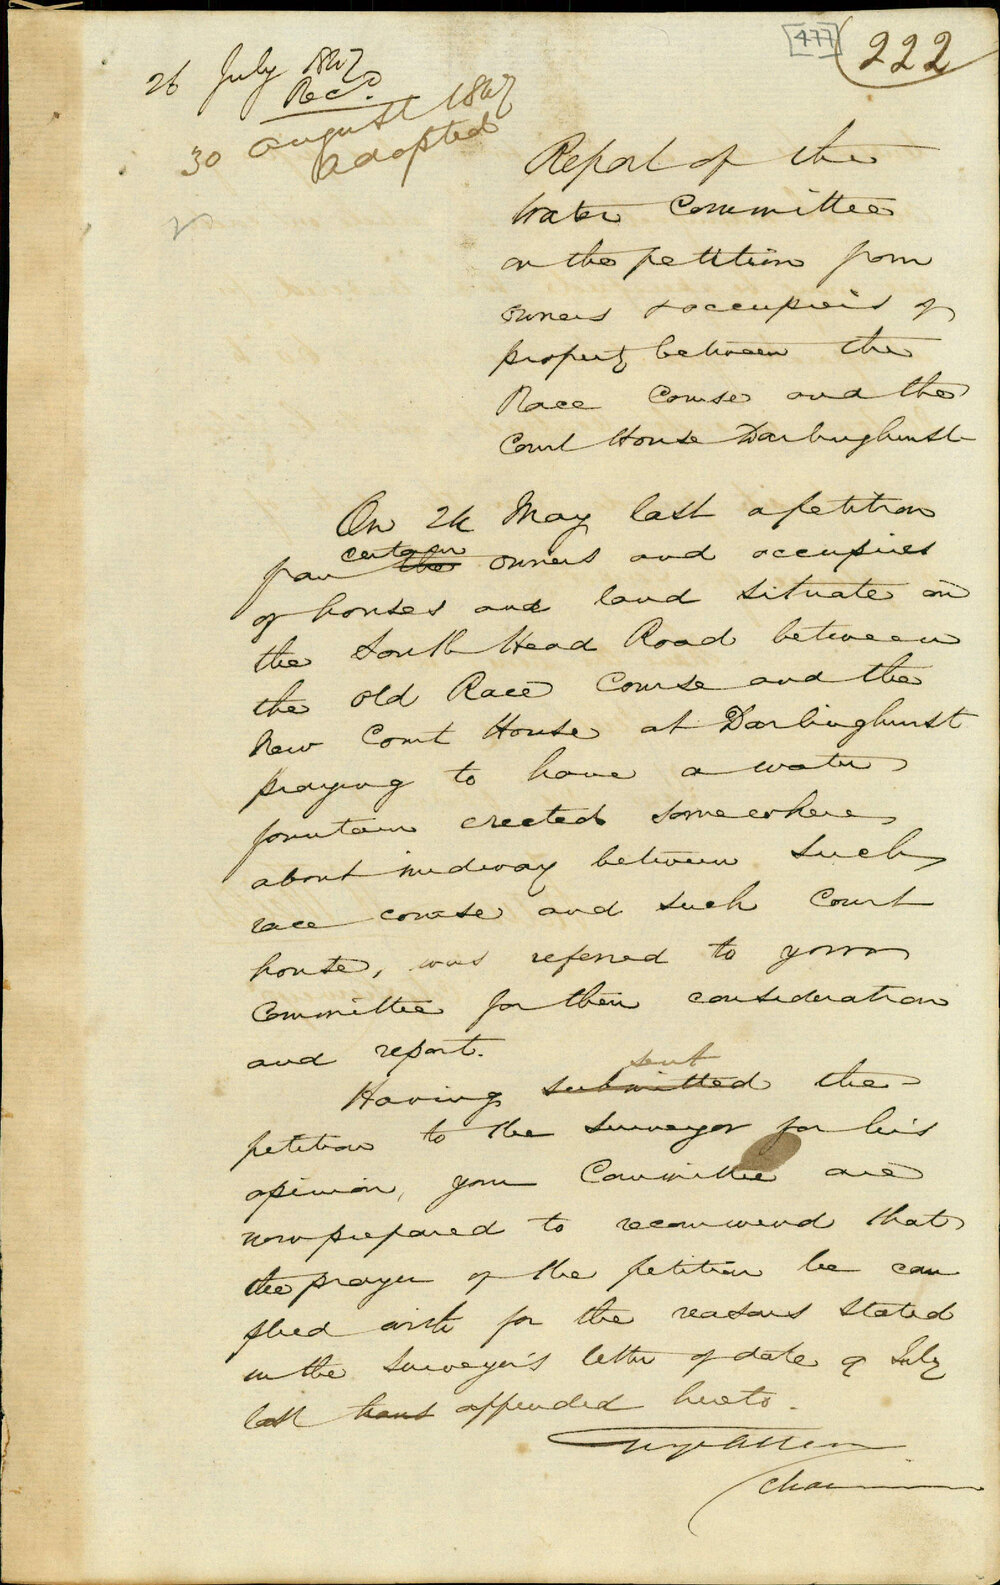 [477] 222
26 July 1847
Recd.
30 August 1847
adopted
Report of the
Water Committee
on the petition from
owners & occupiers of
property between the
Race Course and the
Court House Darlinghurst
On 24 May last a petition
from certain the owners and occupiers
of houses and land situate on
the South Head Road between
the old Race Course and the
New Court House at Darlinghurst
praying to have a water
fountain erected somewhere
about midway between such
race course and such Court
house, was referred to your
Committee for their consideration
and report.
Having submitted sent the
petition to the Surveyor for his
opinion, your Committee are
now prepared to recommend that
the prayer of the petition be com
plied with for the reasons stated
in the Surveyor's letter of date 9 July
last appended hereto.
Chairman